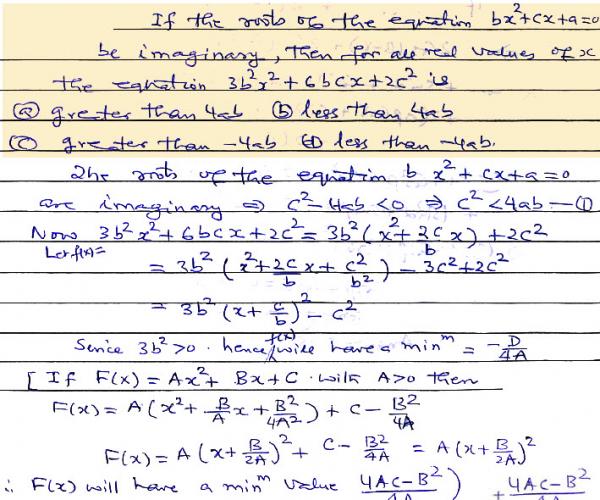 If the roots of the equation bx²+cx+a=0
be imaginary, then for all real values of x
the equation 3b²x²+6bcx+2c² is
(a) greater than 4ab (b) less than 4ab
(c) greater than -4ab (d) less than -4ab.
The roots of the equation b x²+cx+a=0
are imaginary ⇒ c²-4ab<0 ⇒ c²<4ab —(1)
Now 3b²x²+6bcx+2c² = 3b²(x²+2c/b x)+2c²
Let f(x)=
= 3b²(x²+2c/b x+c²/b²)-3c²+2c²
= 3b²(x+c/b)²-c²
Since 3b²>0. hence f(x) will have a minᵐ = -D/4A
[If F(x)=Ax²+Bx+C. with A>0 then
F(x)=A(x²+B/A x+B²/4A²)+C-B²/4A
F(x)=A(x+B/2A)²+C-B²/4A = A(x+B/2A)²
∴ F(x) will have a minᵐ value 4AC-B²/4A) +4AC-B²